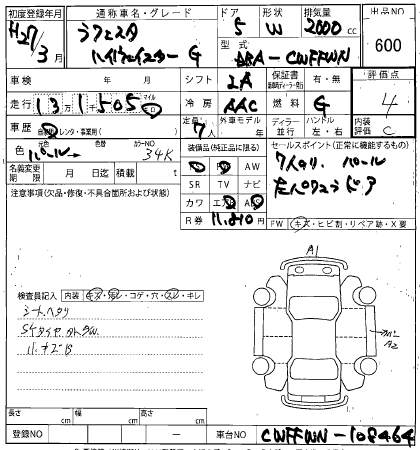 初度登録年月 通称車名・グレード ドア 形状 排気量 出品NO
H27/3月 ラフェスタ ハイウェイスター G 5 W 2000cc 600
型式 DBA-CWFFWN
車検 年 月 シフト IA 保証書 有・無 評価点
走行 13万1505 マイル 冷房 AAC 燃料 G 4
車歴 自家用 レンタ・事業用 定員 7人 外車モデル 年 ディラー 並行 ハンドル 左・右 内装評価 C
色 元色 パール 色替 カラーNO 34K 装備品(純正品に限る) セールスポイント(正常に機能するもの)
名義変更期限 月 日迄 積載 t AW 7人のり パール
注意事項(欠品・修復・不具合箇所および状態) SR TV ナビ
カワ
R券 11,810円 FW キズ・ヒビ割・リペア跡・X要
A1
検査員記入 内装 キズ・汚レ・コゲ・穴・スレ・キレ
シートヘタリ
A2
長さ cm 幅 cm 高さ cm
登録NO 車台NO CWFFWN-108464